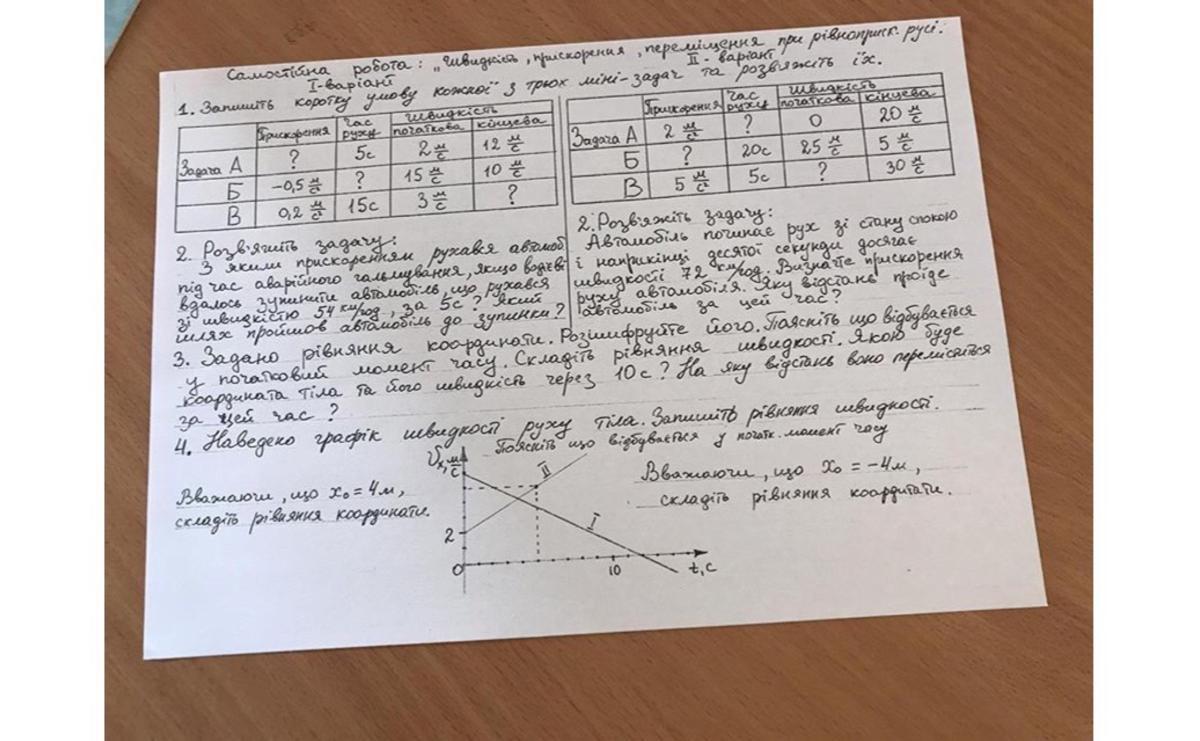 Самостійна робота: „Швидкість, прискорення, переміщення при рівноприск. русі.
I-варіант
II-варіант
1. Запишіть коротку умову кожної з трьох міні-задач та розв'яжіть їх.
Прискорення Час руху Швидкість початкова кінцева
Задача А ? 5с 2 м/с 12 м/с
Б -0,5 м/с² ? 15 м/с 10 м/с
В 0,2 м/с² 15с 3 м/с ?
Прискорення Час руху Швидкість початкова кінцева
Задача А 2 м/с² ? 0 20 м/с
Б ? 20с 25 м/с 5 м/с
В 5 м/с² 5с ? 30 м/с
2. Розв'яжіть задачу:
З яким прискоренням рухався автомоб.
під час аварійного гальмування, якщо водієві
вдалось зупинити автомобіль, що рухався
зі швидкістю 54 км/год, за 5с? Який
шлях пройшов автомобіль до зупинки?
2. Розв'яжіть задачу:
Автомобіль починає рух зі стану спокою
і наприкінці десятої секунди досягає
швидкості 72 км/год. Визначте прискорення
руху автомобіля. Яку відстань проїде
автомобіль за цей час?
3. Задано рівняння координати. Розшифруйте його. Поясніть що відбувається
у початковий момент часу. Складіть рівняння швидкості. Якою буде
координата тіла та його швидкість через 10с? На яку відстань воно переміститься
за цей час?
4. Наведено графік швидкості руху тіла. Запишіть рівняння швидкості.
Поясніть що відбувається у початк. момент часу
Вважаючи, що x₀ = 4м,
складіть рівняння координати.
υx, м/с
II
I
2
0
10
t, с
Вважаючи, що x₀ = -4м,
складіть рівняння координати.